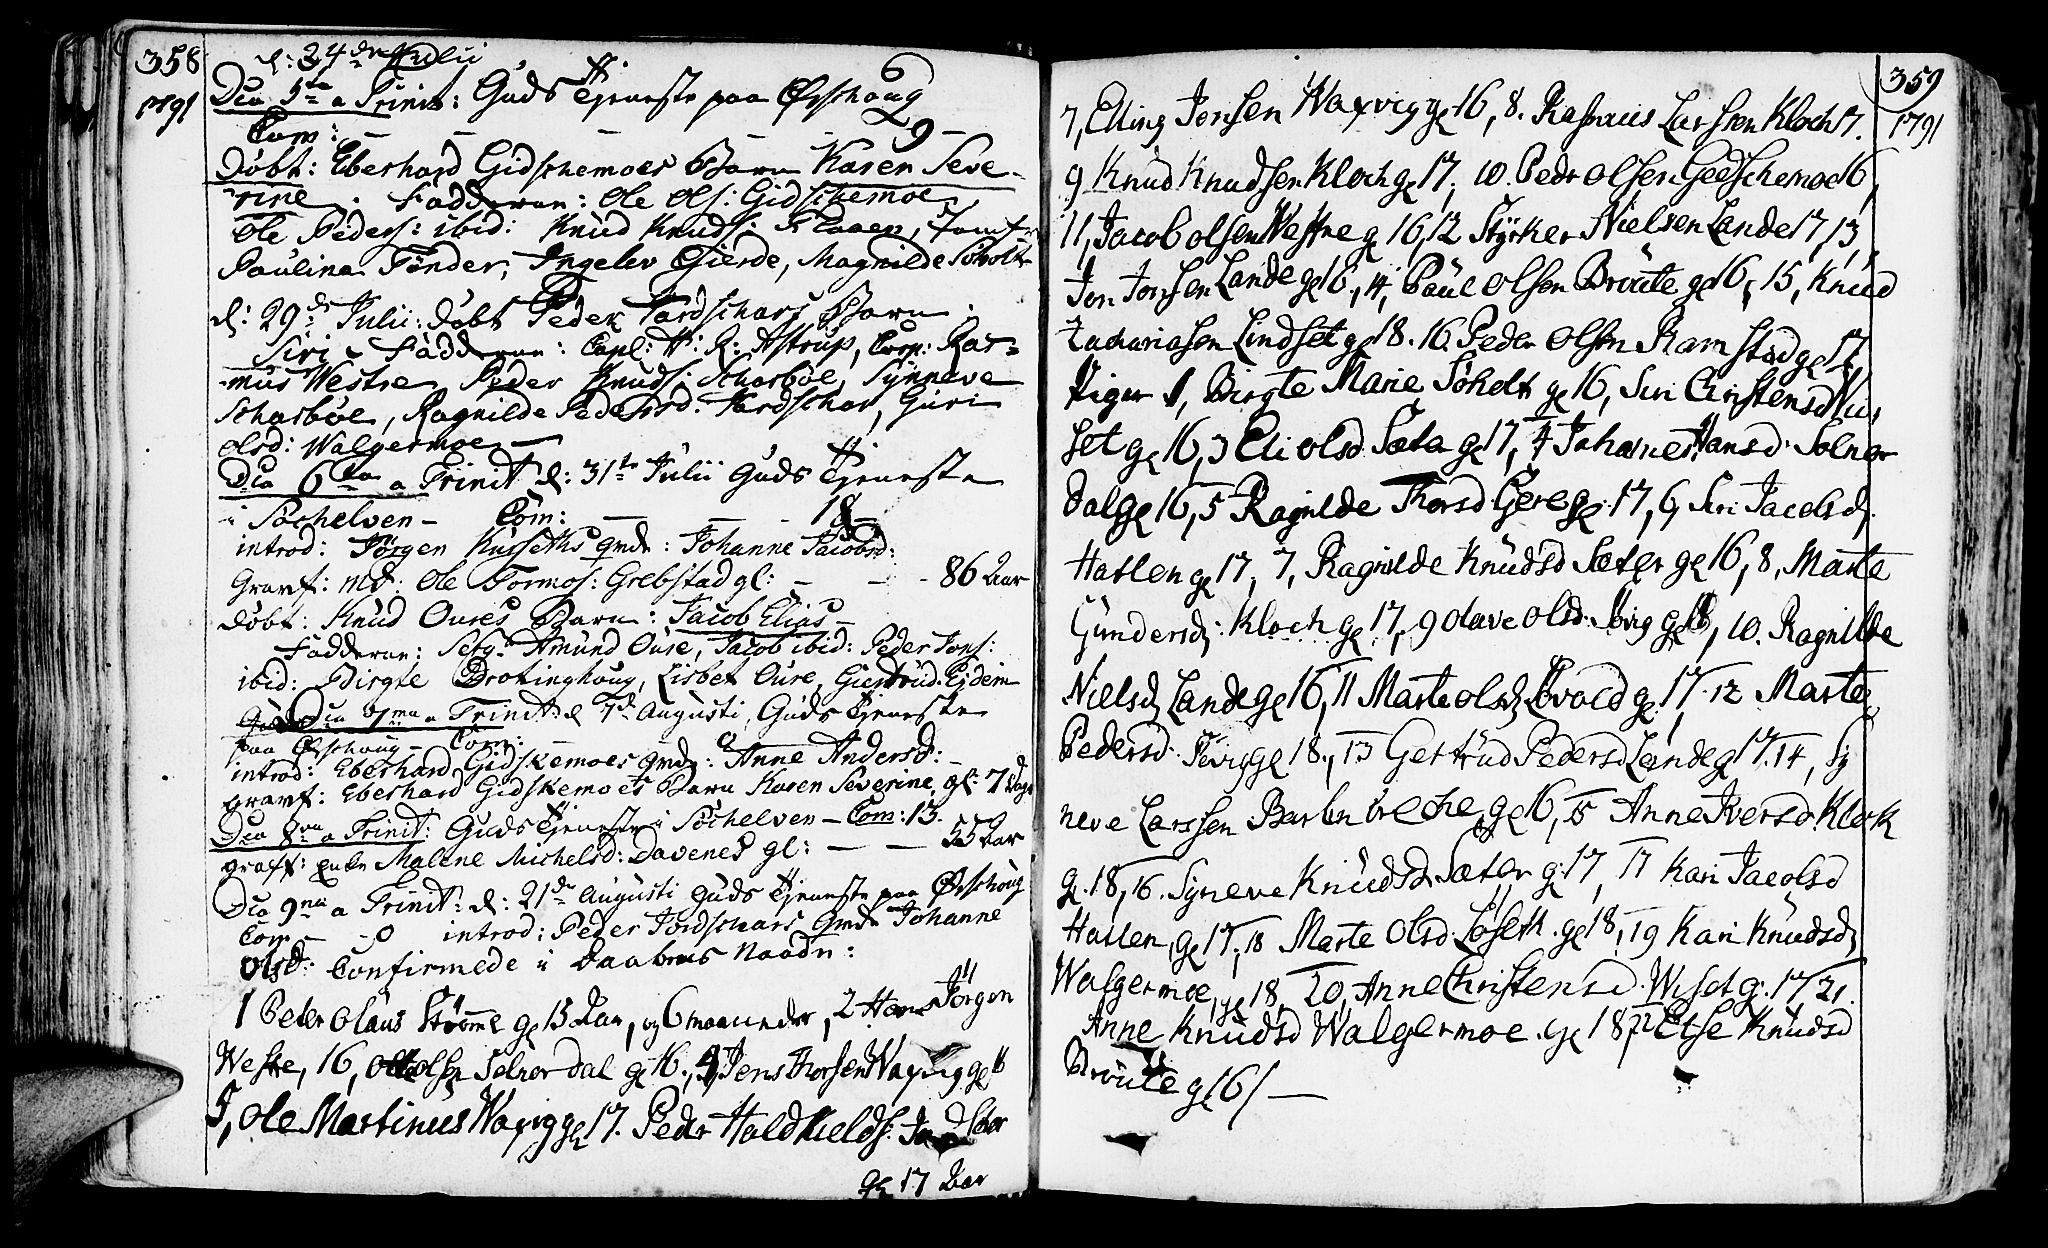 358
1791
d: 24de Julii
Dca 5ta a Trinit: Guds Tjeneste paa Ørschoug
Com: — — — — — 9 —
Døbt: Eberhard Gidschemoes Barn Karen Seve-
rine. Fadderne: Ole Ols: Gidschemoe,
Ole Peders: ibid: Knud Knuds: Jomfr
Paulina Tønder, Ingelev Gierde, Magnilde Søholt
d: 29de Julii: døbt Peder Tordschars Barn
Siri — Fadderne: Capl: Hr: R: Astrup, Corp: Ras-
mus Westre, Peder Knuds: Scharbøe, Synneve
Scharbøe, Ragnilde Pedersd: Tordschar, Guri
Olsd: Walgermoe —
Dca 6ta a Trinit d: 31te Julii Guds Tjeneste
i Søchelven — Com: — — 18 —
introd: Jørgen Kurseths qvde: Johanne Jacobsd:
Gravf: md: Ole Tormos: Grebstad gl: — — 86 Aar
døbt: Knud Oures Barn: Jacob Elias —
Fadderne: Amund Oure, Jacob ibid: Peder Jons:
ibid: Birgte Drotninghoug, Lisbet Oure, Giertrud Ejdem
Dca 7ma a Trinit: d 7de Augusti, Guds Tjeneste
paa Ørschoug — Com:
introd: Eberhard Gidskemoes qvde: Anne Andersd: —
gravf: Eberhard Gidskemoes Barn Karen Severine, gl: 7 Dage
Dca 8va a Trinit: Guds Tjeneste i Søchelven — Com: 15.
graft: Enke Malene Michelsd: Davenes gl: — — 55 Aar
Dca 9na a Trinit: d: 21de Augusti Guds Tjeneste paa Ørschoug
Com — 0 introd: Peder Tordschars Qvde Johanne
Olsd: Confirmede i Daabens Naade:
1 Peter Olaus Strømme gl 15 Aar, og 6 maaneder, 2 Hans Jørgen
Westre, 16, Olsen Solnordal gl 16., 4, Jens Thorsen Waxvig gl 16
5, Ole Martinus Waxvig gl 17. Peder Hald Kields: Tordschar
gl 17 Aar
359
1791
7, Elling Jonsen Waxvig gl 16, 8. Rasmus Larssen Kloch 17.
9 Knud Knudsen Kloch gl 17, 10. Peder Olsen Gedschemoe 16,
11, Jacob Olsen Westre gl 16, 12 Styrker Nielsen Lande 17, 13,
Jon Jonsen Lande gl 16, 14, Paul Olsen Broute gl 16, 15, Knud
Zachariasen Lindset gl 18. 16. Peder Olsen Ramstad gl 17.
Piger 1, Birgte Marie Søholt gl 16, Siri Christensd Wii
set gl 16, 3 Eli Olsd Sæter gl 17, 4 Johanne Hansd Solnor
dal gl 16, 5 Ragnilde Thorsd Gere gl. 17, 6, Siri Jacobsd
Hatlen gl 17, 7, Ragnilde Knudsd Sæter gl 16, 8, Marte
Gundersd: Kloch gl 17, 9 Olave Olsd gl 16, 10. Ragnilde
Nielsd Lande gl 16, 11 Marte Olsd gl 17. 12 Marte
Pedersd gl 18., 13 Gertrud Pedersd Lande gl 17. 14, Sy
neve Larssen Barbubreche, gl 16, 15 Anne Iversd. Klock
gl. 18, 16. Syneve Knudsd Sæter gl 17, 17 Kari Jacobsd
Hatlen, gl 17, 18 Marte Olsd Løseth. gl 18, 19 Kari Knudsd
Walgermoe, gl 18, 20, Anne Christensd. Wiset gl. 17, 21.
Anne Knudsd Walgermoe. gl 18, 22 Else Knudsd
Broute gl 16/ —